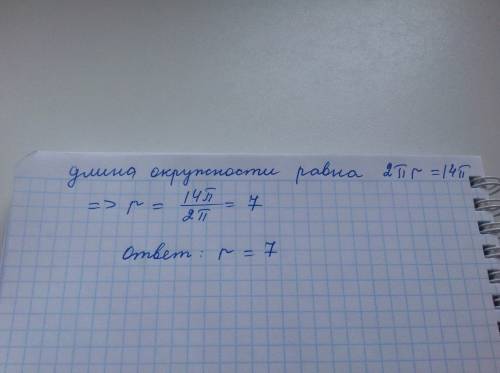 длина окружности равна 2πr = 14π
=> r = 14π/2π = 7
Ответ: r = 7